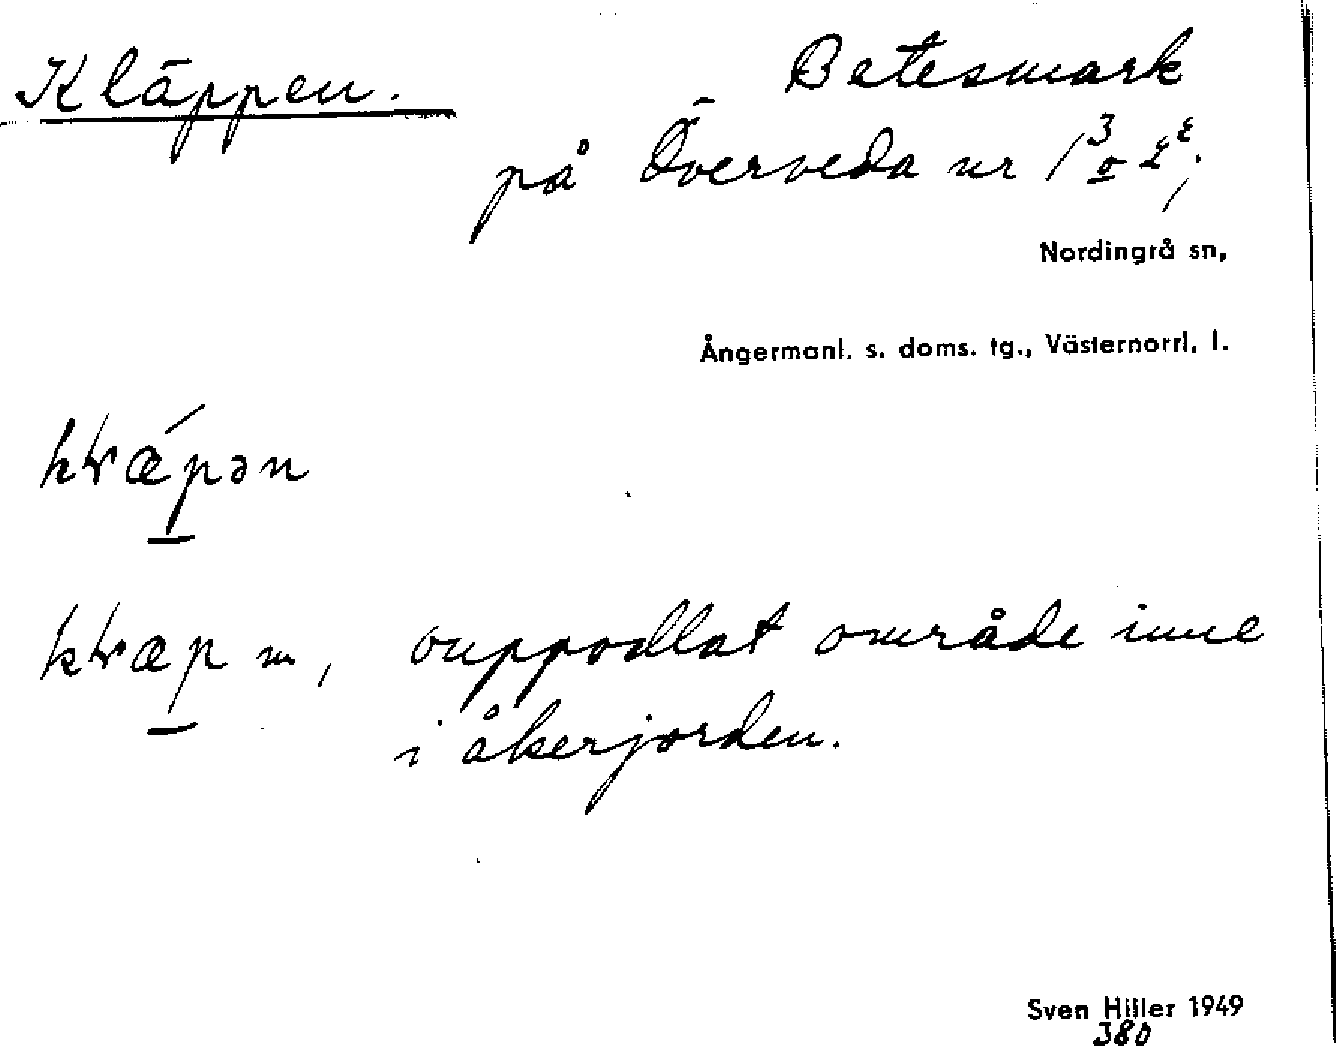 Kläppen. Betesmark
på Överveda nr 1³ o 2²;
Nordingrå sn,
Ångermanl. s. doms. tg., Västernorrl. l.
ouppodlat område inne
i åkerjorden.
Sven Hiller 1949
380